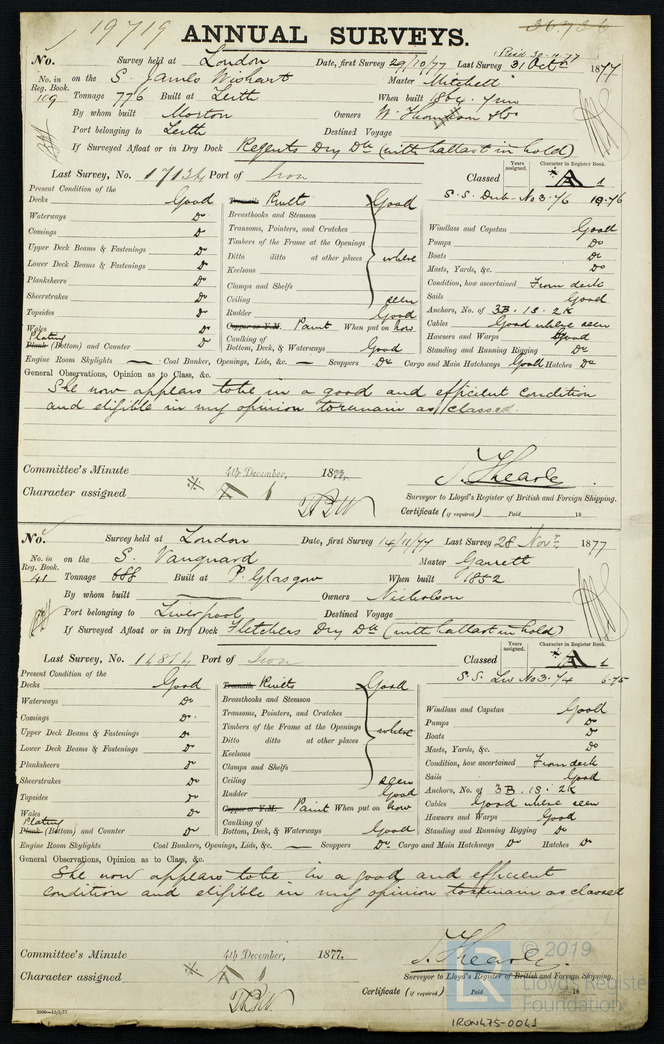 19719
ANNUAL SURVEYS.
No. Survey held at London Date, first Survey 29/10/77 Last Survey 31 Octr 1877
No. in Reg. Book. 109 on the S. James Wishart Master Mitchell
Tonnage 776 Built at Leith When built 1864. 7mo
By whom built Morton Owners W. Thomson & Co
Port belonging to Leith Destined Voyage
If Surveyed Afloat or in Dry Dock Regents Dry Dk (with ballast in hold)
Last Survey, No. 17134 Port of Iron Classed Years assigned. Character in Register Book. A 1
S.S. Dub. No 3.76 10.76
Present Condition of the
Decks Good Rivets Good
Waterways Do Breasthooks and Stemson Windlass and Capstan Good
Comings Do Transoms, Pointers, and Crutches Pumps Do
Upper Deck Beams & Fastenings Do Timbers of the Frame at the Openings Boats Do
Lower Deck Beams & Fastenings Do Ditto ditto at other places where Masts, Yards, &c. Do
Planksheers Do Keelsons Condition, how ascertained From deck
Sheerstrakes Do Clamps and Shelfs Sails Good
Topsides Do Ceiling seen Anchors, No. of 3B. 1S. 2K
Wales Do Rudder Good Cables Good where seen
Plating Plank (Bottom) and Counter Do Copper or Y.M. Paint When put on now Hawsers and Warps Good
Caulking of Bottom, Deck, & Waterways Good Standing and Running Rigging Do
Engine Room Skylights — Coal Bunker, Openings, Lids, &c. — Scuppers Do Cargo and Main Hatchways Good Hatches Do
General Observations, Opinion as to Class, &c.
She now appears to be in a good and efficient condition
and eligible in my opinion to remain as classed
Committee's Minute 4th December, 1877.
Character assigned A 1
Surveyor to Lloyd's Register of British and Foreign Shipping.
Certificate (if required) Paid 18
No. Survey held at London Date, first Survey 14/11/77 Last Survey 28 Novr 1877
No. in Reg. Book. 41 on the S. Vanguard Master Garrett
Tonnage 688 Built at P. Glasgow When built 1852
By whom built Owners Nicholson
Port belonging to Liverpool Destined Voyage
If Surveyed Afloat or in Dry Dock Fletchers Dry Dk (with ballast in hold)
Last Survey, No. 14814 Port of Iron Classed Years assigned. Character in Register Book. A 1
S.S. Liv No 3.74 6.75
Present Condition of the
Decks Good Rivets Good
Waterways Do Breasthooks and Stemson Windlass and Capstan Good
Comings Do Transoms, Pointers, and Crutches Pumps Do
Upper Deck Beams & Fastenings Do Timbers of the Frame at the Openings where Boats Do
Lower Deck Beams & Fastenings Do Ditto ditto at other places Masts, Yards, &c. Do
Keelsons
Planksheers Do Clamps and Shelfs Condition, how ascertained From deck
Sheerstrakes Do Ceiling seen Sails Good
Topsides Do Rudder Good Anchors, No. of 3B. 1S. 2K
Wales Do Copper or Y.M. Paint When put on now Cables Good where seen
Plating Plank (Bottom) and Counter Do Caulking of Bottom, Deck, & Waterways Good Hawsers and Warps Good
Standing and Running Rigging Do
Engine Room Skylights Coal Bunkers, Openings, Lids, &c. — Scuppers Do Cargo and Main Hatchways Do Hatches Do
General Observations, Opinion as to Class, &c.
She now appears to be in a good and efficient
condition and eligible in my opinion to remain as classed
Committee's Minute 4th December, 1877.
Character assigned A 1
Surveyor to Lloyd's Register of British and Foreign Shipping.
Certificate (if required) Paid 18
© 2019
Lloyd's Register
Foundation
IRON475-0041